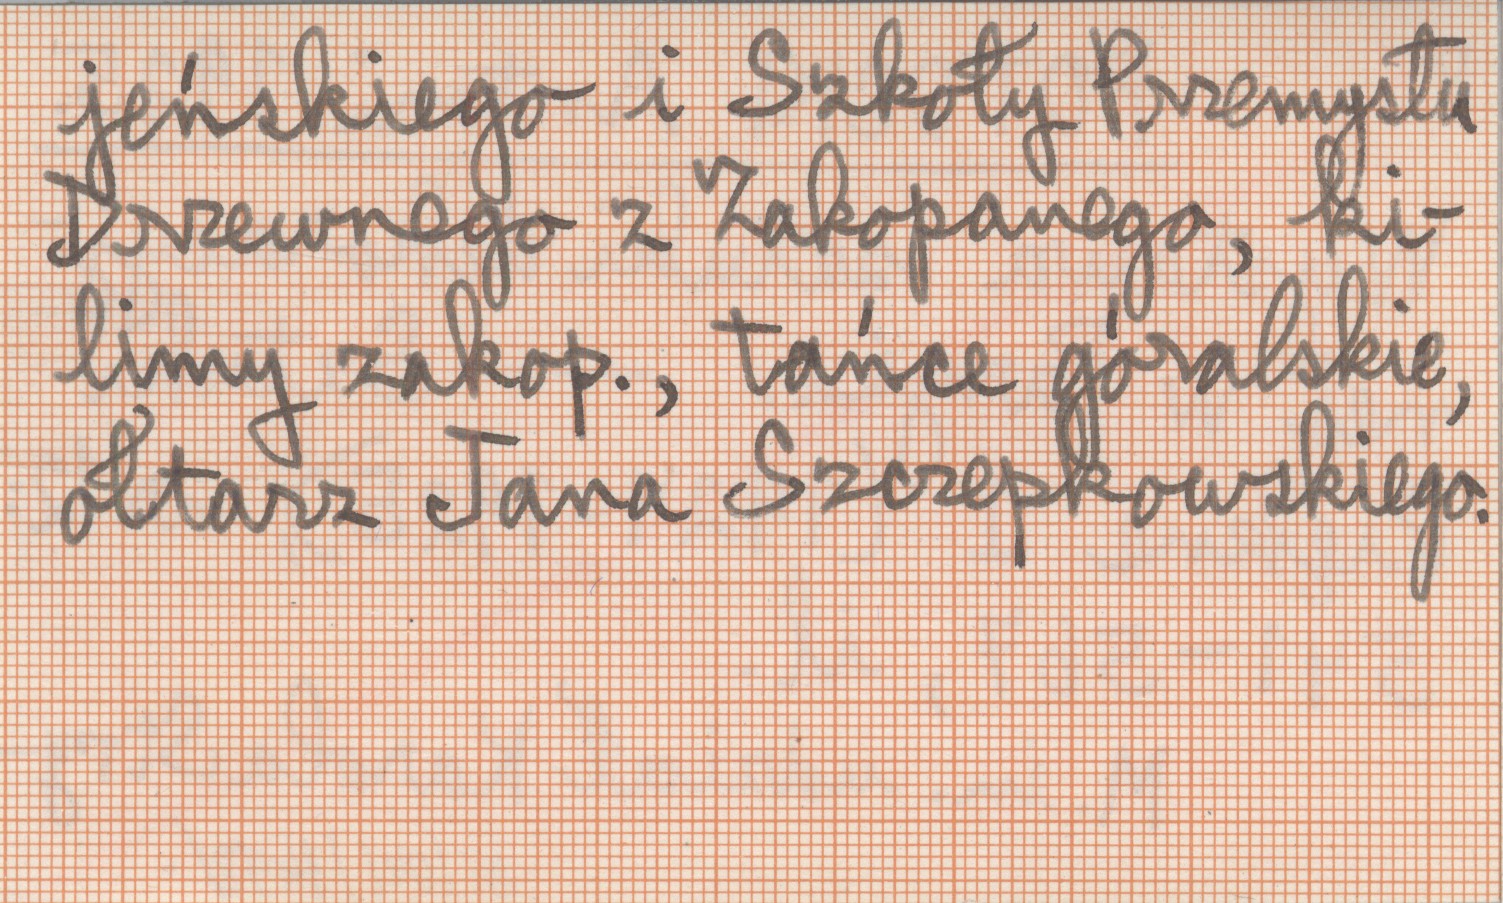 jeńskiego i Szkoły Przemysłu
Drzewnego z Zakopanego, ki-
limy zakop., tańce góralskie,
ołtarz Jana Szczepkowskiego.